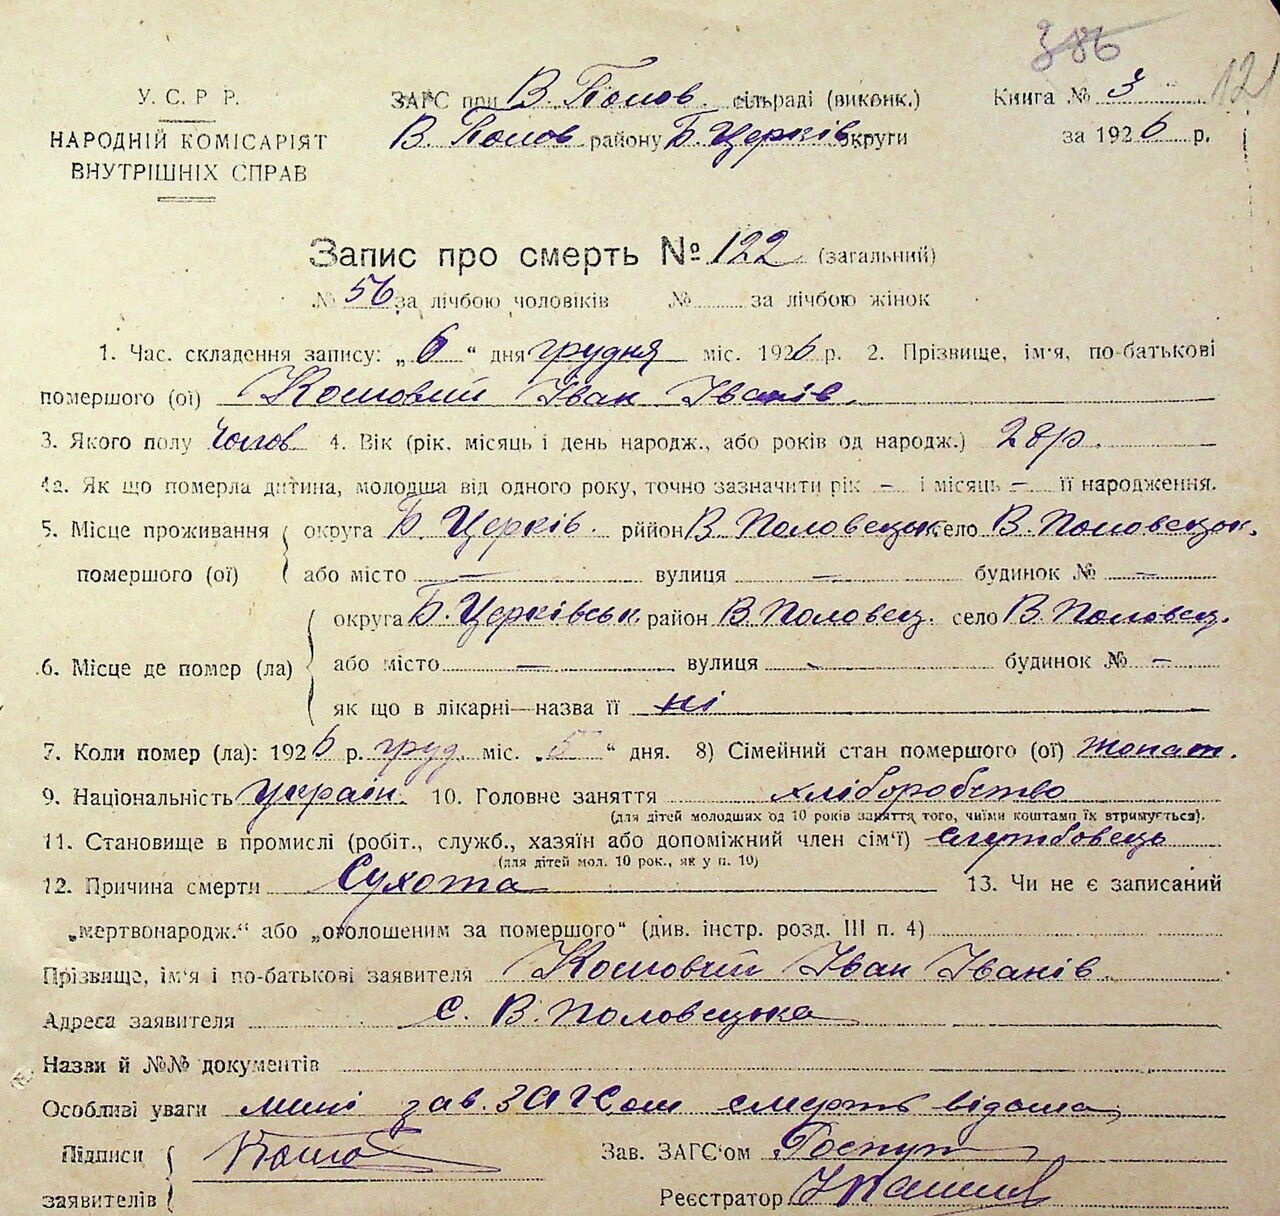 386
121
У. С. Р Р.
НАРОДНІЙ КОМІСАРІЯТ
ВНУТРІШНІХ СПРАВ
ЗАГС при В. Полов. сільраді (виконк.)
В. Полов району Б. Церків округи
Книга № 3
за 1926 р.
Запис про смерть № 122 (загальний)
№ 56 за лічбою чоловіків № за лічбою жінок
1. Час. складення запису: „6“ дня грудня міс. 1926 р. 2. Прізвище, ім'я, по-батькові
помершого (ої) Іван Іванів.
3. Якого полу чолов 4. Вік (рік. місяць і день народж., або років од народж.) 28 р.
4а. Як що померла дитина, молодша від одного року, точно зазначити рік – і місяць – її народження.
5. Місце проживання помершого (ої) округа Б. Церків. рийон В. Половецьк. село В. Половецьк.
або місто — вулиця — будинок № —
6. Місце де помер (ла) округа Б. Церківськ. район В. Половец. село В. Половец.
або місто — вулиця - будинок № —
як що в лікарні—назва її ні
7. Коли помер (ла): 1926 р. груд. міс. „5“ дня. 8) Сімейний стан помершого (ої) жонат.
9. Національність Україн. 10. Головне заняття хліборобство
(для дітей молодших од 10 років заняття того, чиїми коштами їх втримується).
11. Становище в промислі (робіт., служб., хазяїн або допоміжний член сім'ї) службовець
(для дітей мол. 10 рок., як у п. 10)
12. Причина смерти Сухота 13. Чи не є записаний
„мертвонародж.“ або „оголошеним за помершого“ (див. інстр. розд. III п. 4)
Прізвище, ім'я і по-батькові заявителя Іван Іванів.
Адреса заявителя с. В. Половецька
Назви й №№ документів
Особливі уваги мині зав. ЗАГСом смерть відома
Підписи
заявителів
Зав. ЗАГС'ом
Реєстратор